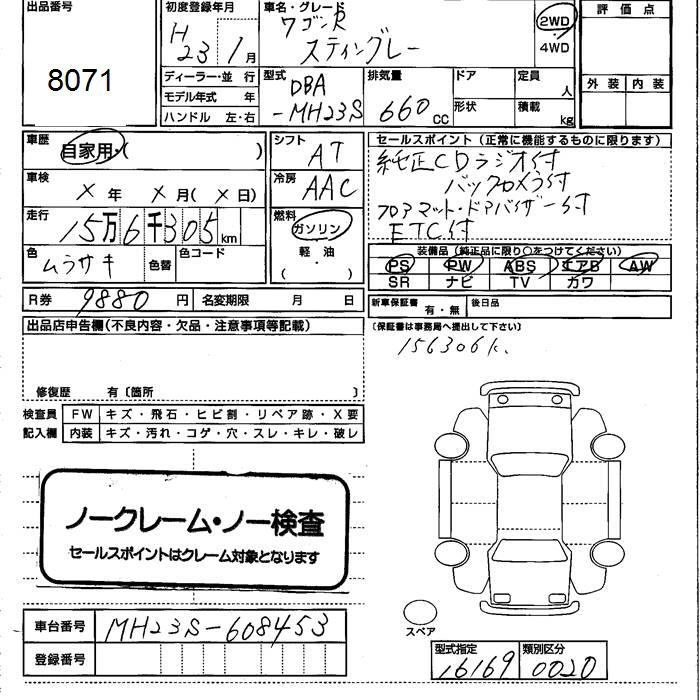 出品番号
8071
初度登録年月
H23 1月
車名・グレード
ワゴンR
スティングレー
2WD
・
4WD
評価点
外装 内装
ディーラー・並行
モデル年式 年
ハンドル 左・右
型式
DBA
-MH23S
排気量
660 CC
ドア
形状
定員 人
積載 kg
車歴
自家用・( )
車検
X 年 X 月( X 日)
走行
15万6千305km
色
ムラサキ
色替
色コード
シフト
AT
冷房
AAC
燃料
ガソリン
軽・油
・( )
セールスポイント(正常に機能するものに限ります)
純正CDラジオ付
バックカメラ付
フロアマット・ドアバイザー付
ETC付
装備品(純正品に限り○をつけてください)
PS PW ABS エアB AW
SR ナビ TV カワ
R券 9880 円 名変期限 月 日
新車保証書 有・無 後日品
(保証書は事務局へ提出して下さい)
156306k.
出品店申告欄(不良内容・欠品・注意事項等記載)
修復歴 有〔箇所 〕
検査員 FW キズ・飛石・ヒビ割・リペア跡・X要
記入欄 内装 キズ・汚れ・コゲ・穴・スレ・キレ・破レ
ノークレーム・ノー検査
セールスポイントはクレーム対象となります
車台番号 MH23S-608453
登録番号
スペア
型式指定 類別区分
16169 0020